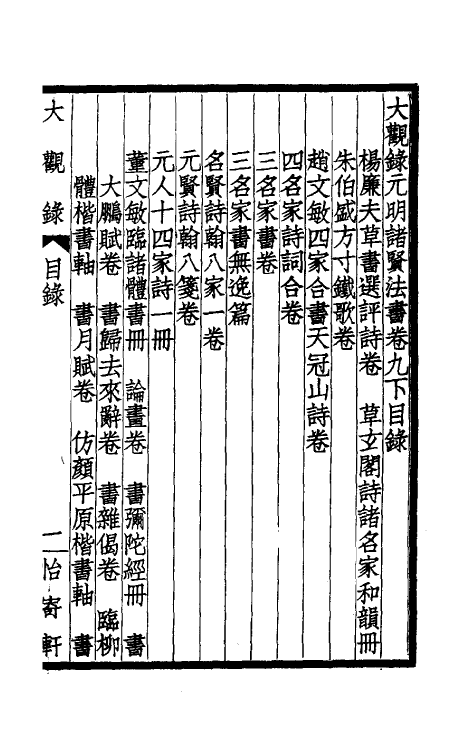 大觀錄元明諸賢法書卷九下目錄
楊廉夫草書選評詩卷　草玄閣詩諸名家和韻冊
朱伯盛方寸鐵歌卷
趙文敏四家合書天冠山詩卷
四名家詩詞合卷
三名家書卷
三名家書無逸篇
名賢詩翰八家一卷
元賢詩翰八箋卷
元人十四家詩一冊
董文敏臨諸體書冊　論畫卷　書彌陀經冊　書
大鵬賦卷　書歸去來辭卷　書雜偈卷　臨柳
體楷書軸　書月賦卷　仿顏平原楷書軸　書
大觀錄　目錄　二　怡寄軒